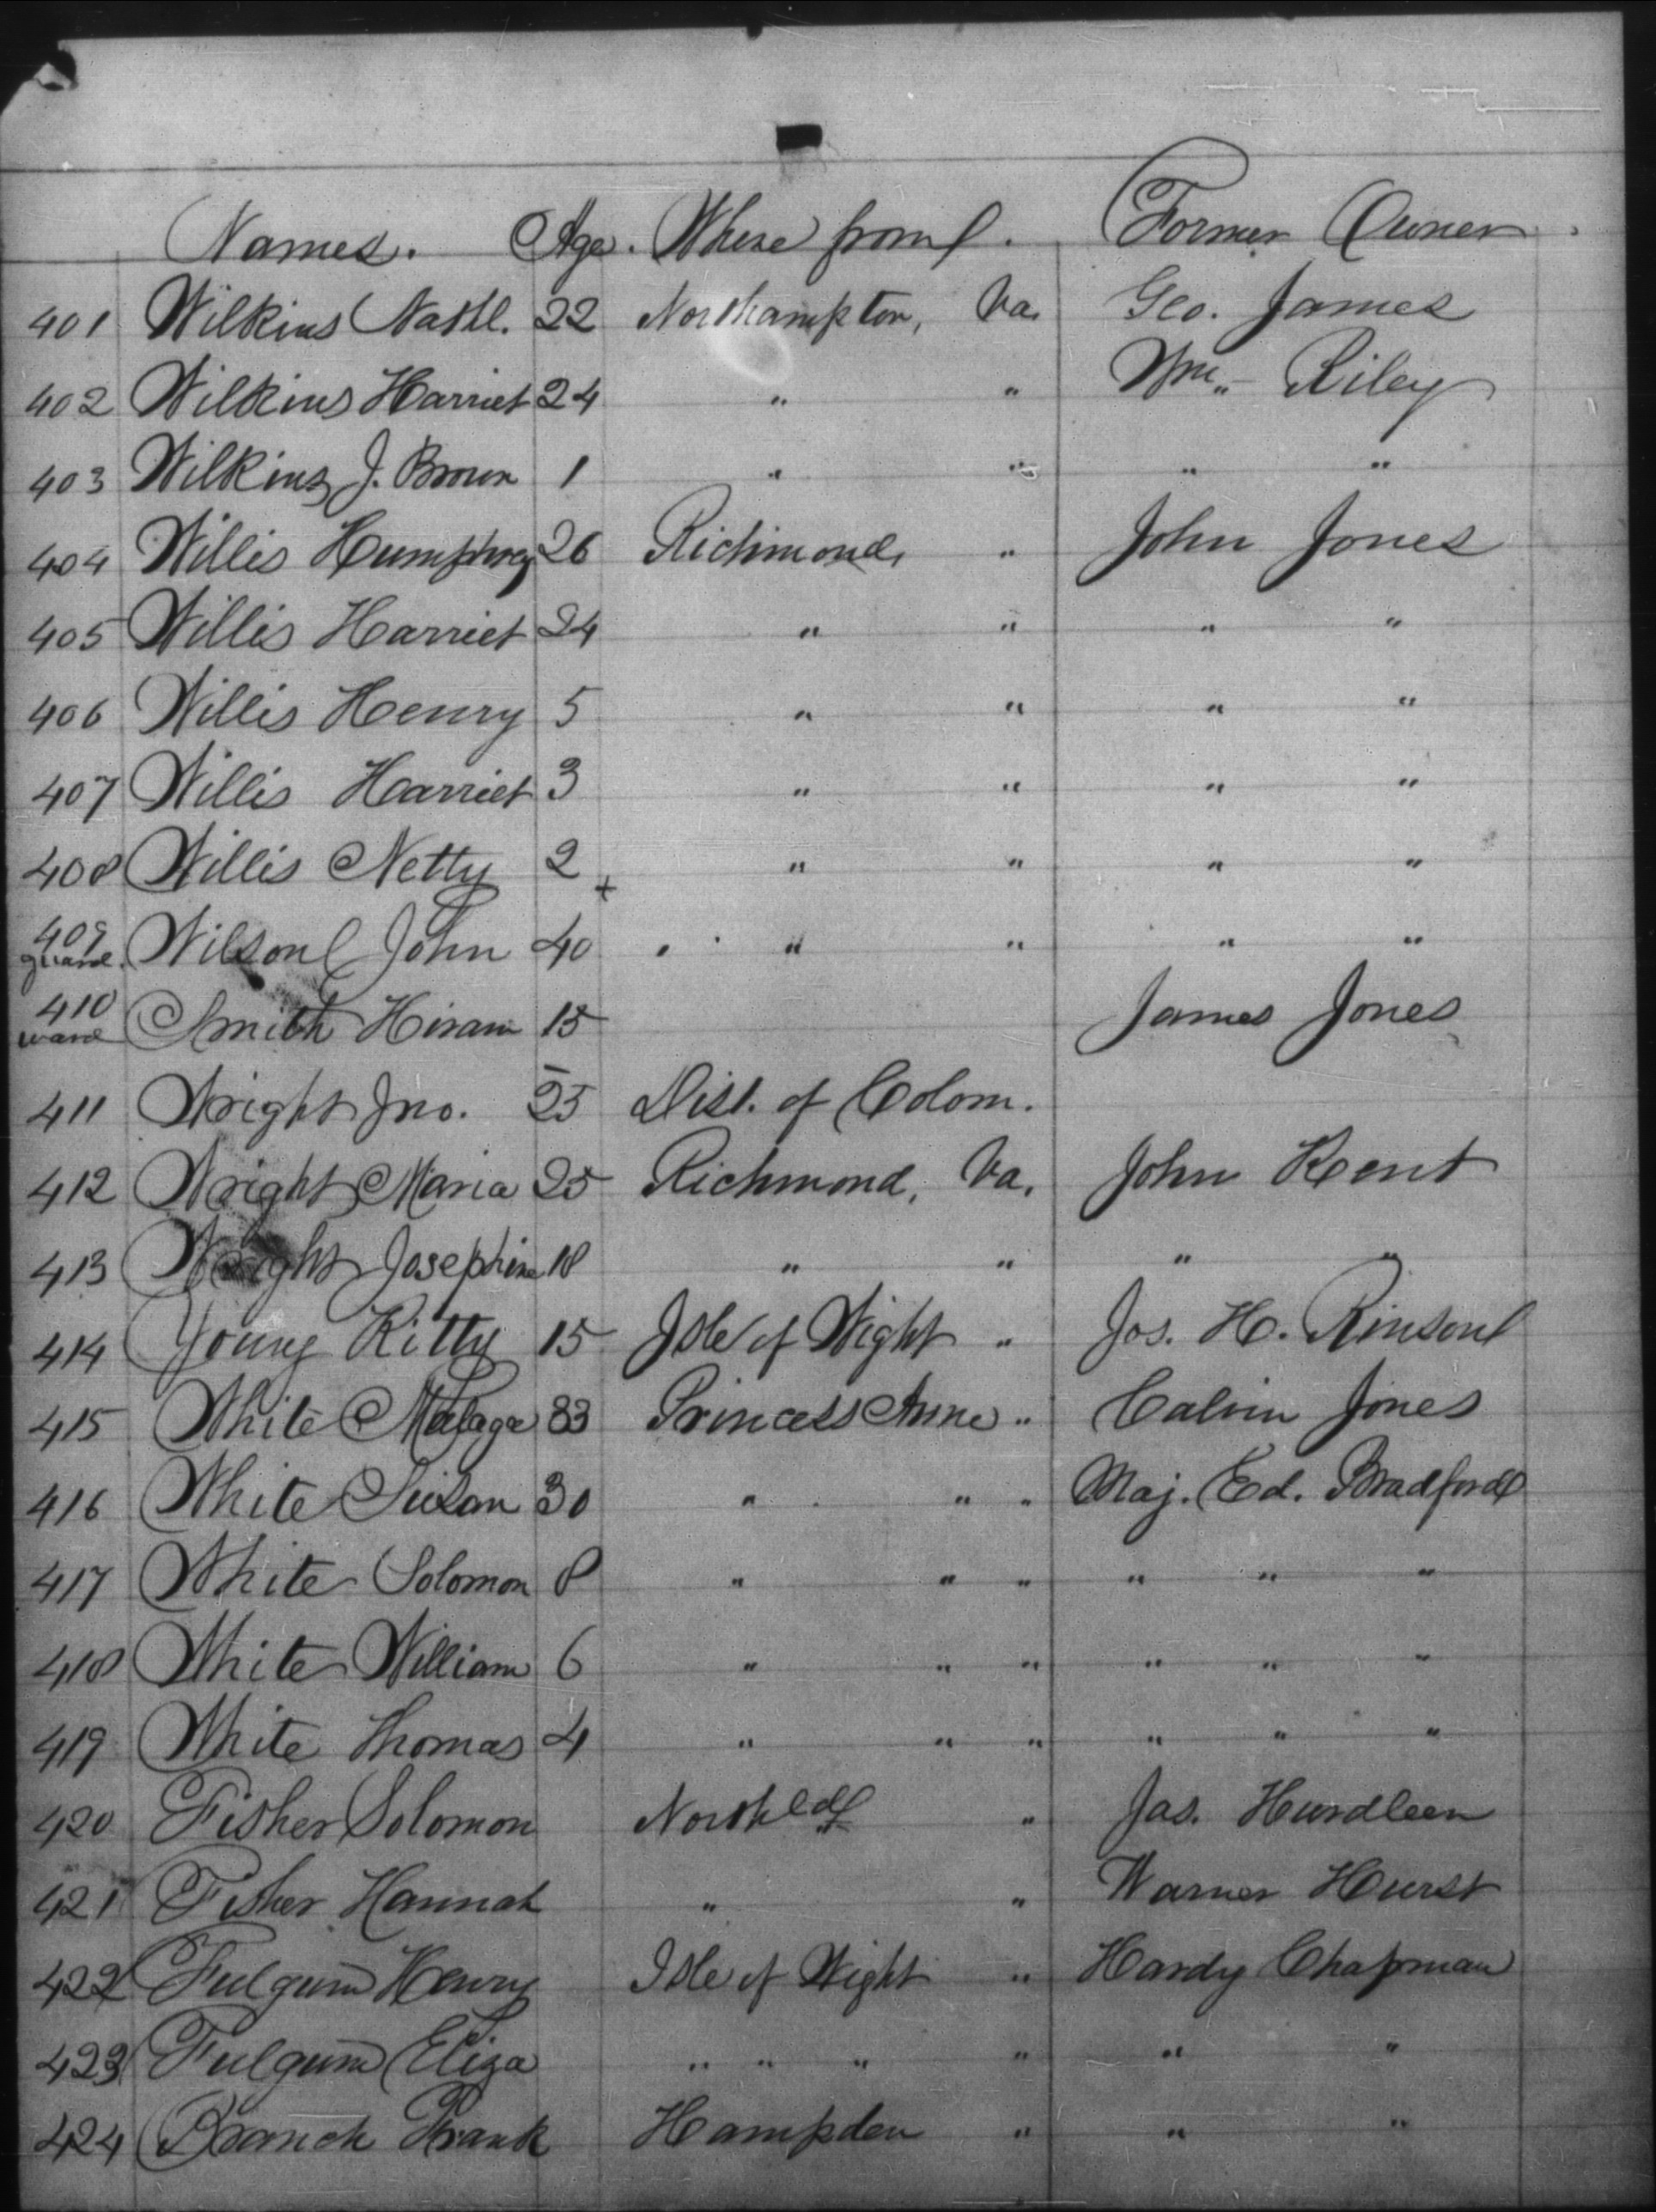 Names. Age. Where from. Former Owner.
401 Wilkins Nathl. 22 Northampton, Va. Geo. James
402 Wilkins Harriet 24 " " Wm. Riley
403 Wilkins J. Brown 1 " " " "
404 Willis Humphrey 26 Richmond, " John Jones
405 Willis Harriet 24 " " " "
406 Willis Henry 5 " " " "
407 Willis Harriet 3 " " " "
408 Willis Netty 2 + " " " "
409 guard. Wilson John 40 " " " "
410 ward Smith Hiram 15 James Jones
411 Wright Jno. 25 Dist. of Colom.
412 Wright Maria 25 Richmond, Va. John Kent
413 Wright Josephine 18 " " " "
414 Young Kitty 15 Isle of Wight " Jos. H. Rinson
415 White Malaga 33 Princess Anne " Calvin Jones
416 White Susan 30 " " " Maj. Ed. Bradford
417 White Solomon 8 " " " " " "
418 White William 6 " " " " " "
419 White Thomas 4 " " " " " "
420 Fisher Solomon " Jas. Hurdleen
421 Fisher Hannah " " Warner Hurst
422 Fulgum Henry Isle of Wight " Hardy Chapman
423 Fulgum Eliza " " " " " "
424 Branch Frank Hampden " " "